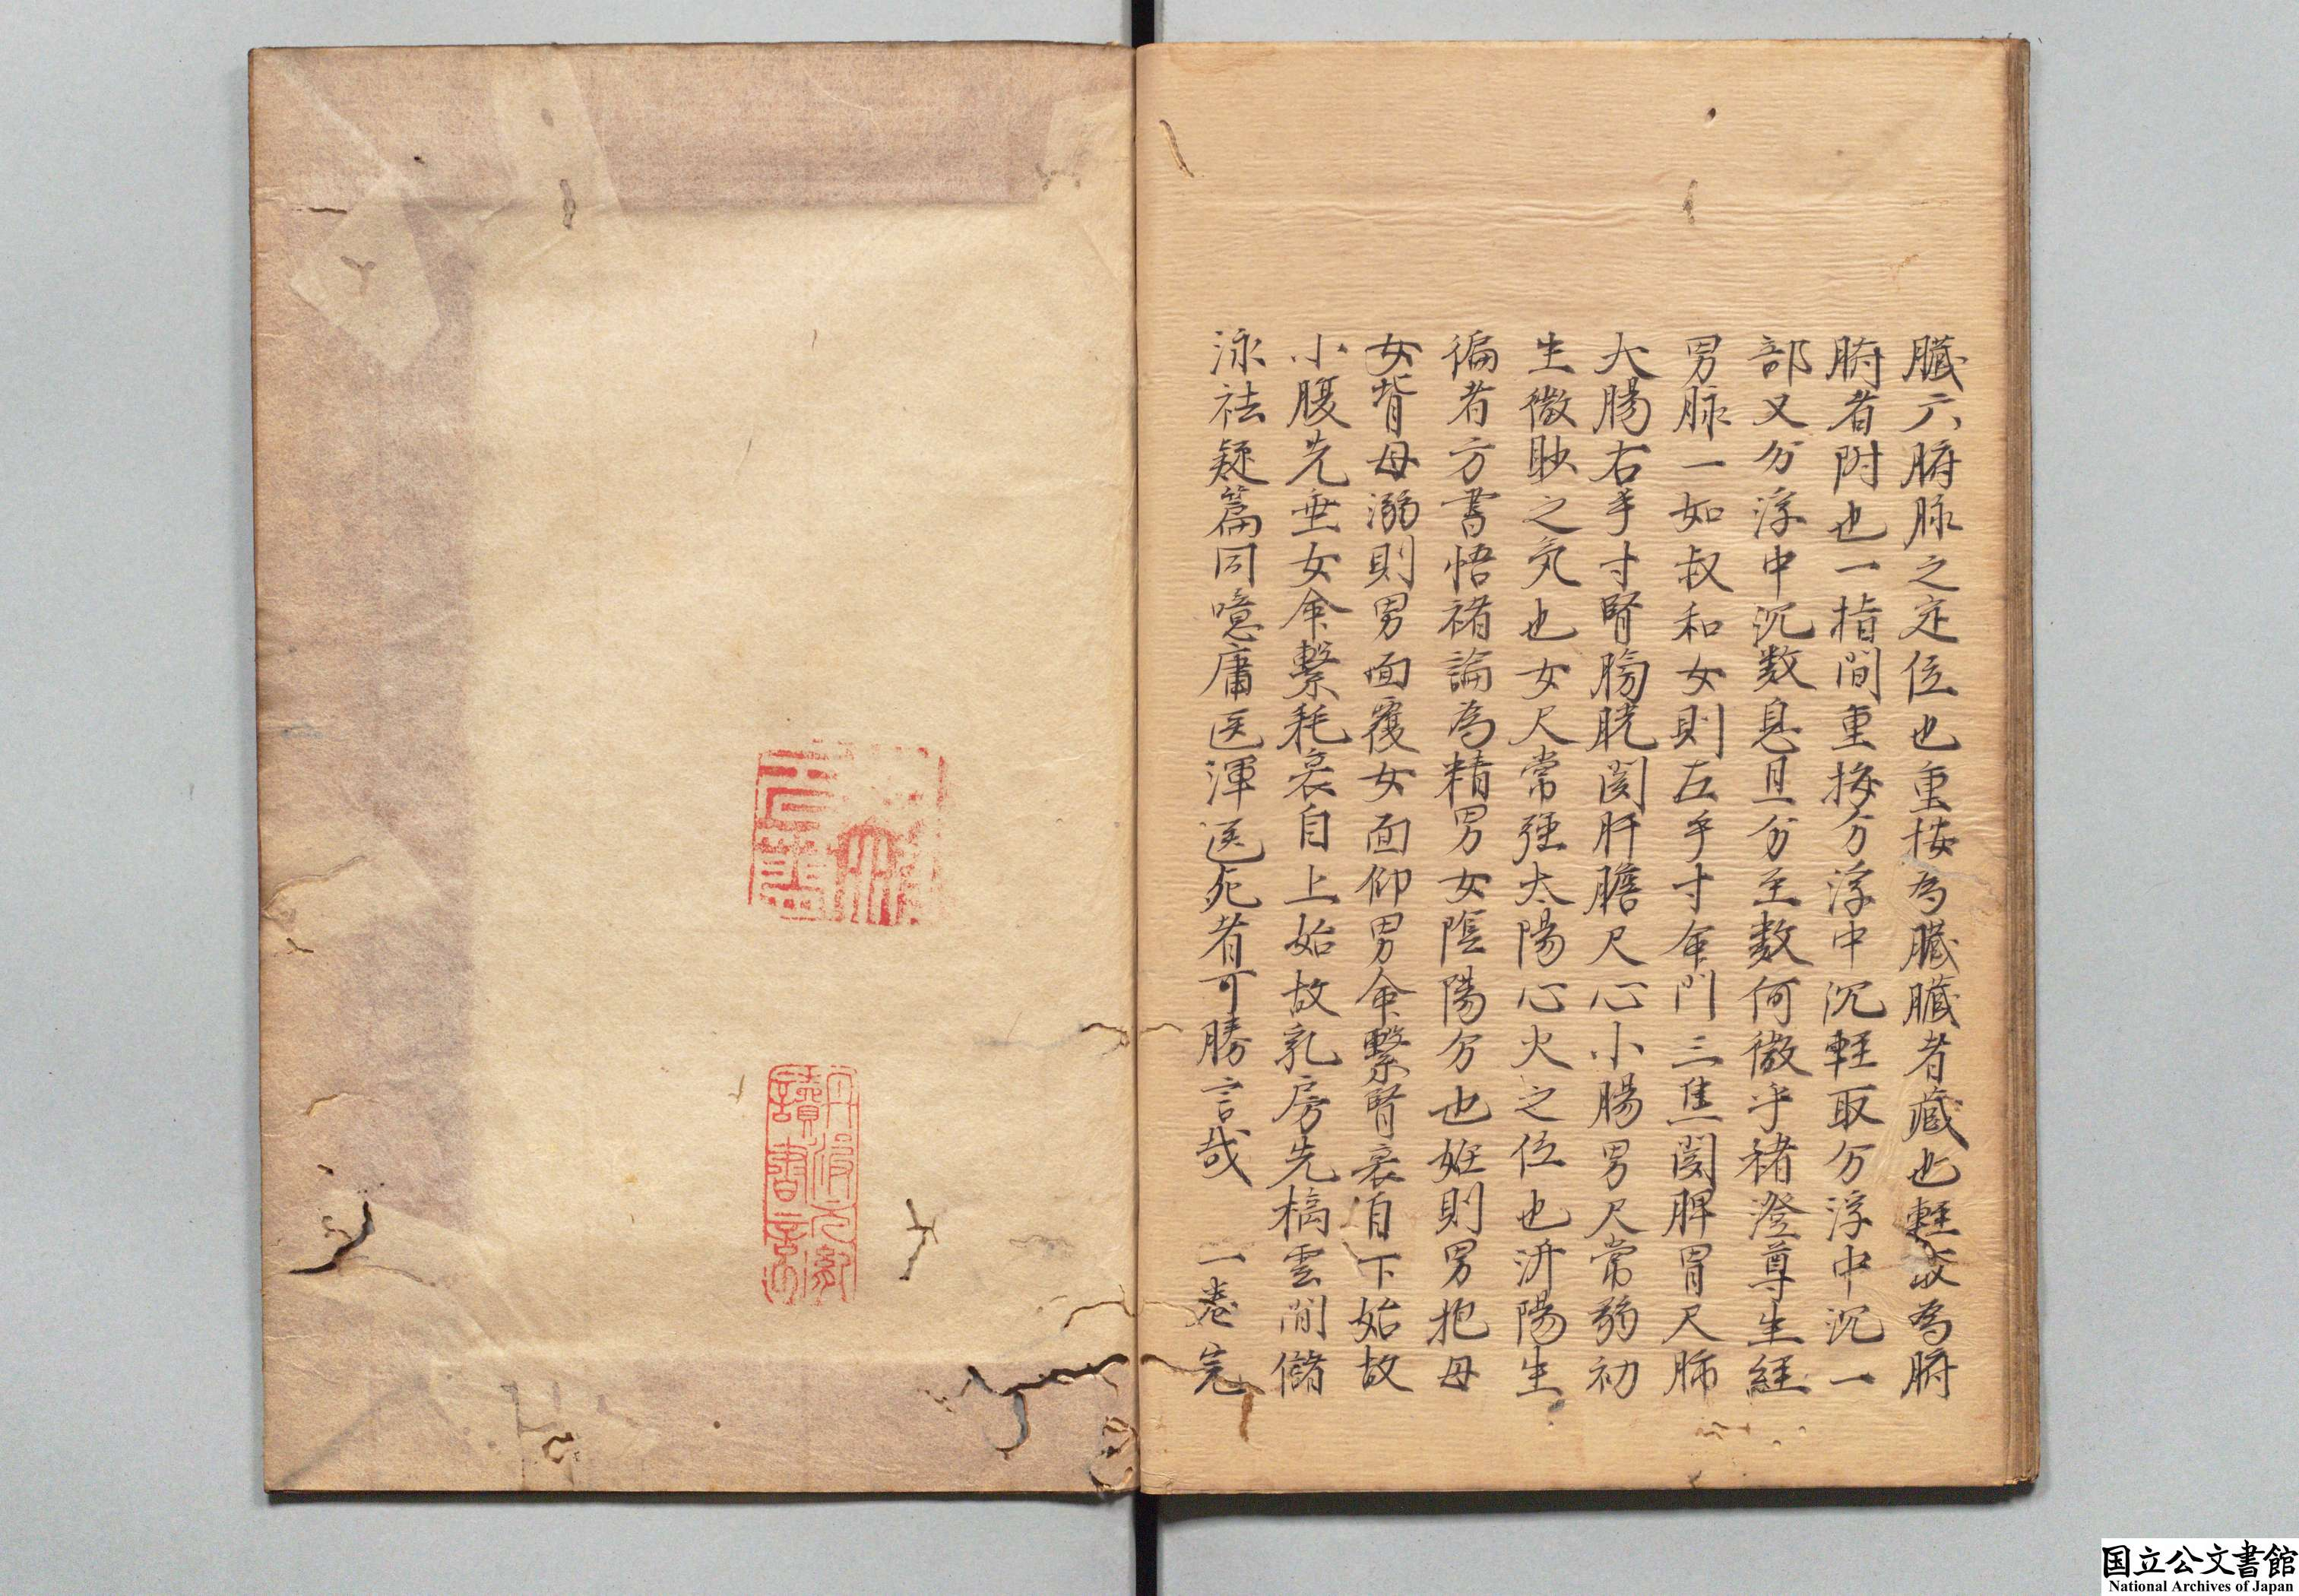 臓六腑脉之定位也重按為臓臓者蔵也軽取為腑
腑者附也一指間重按分浮中沉軽取分浮中沉一
部又分浮中沉数息且分至数何微乎褚澄尊生経
男脉一如叔和女則左手寸命門三焦関脾胃尺肺
大腸右手寸腎膀胱関肝膽尺心小腸男尺常弱初
生微眇之気也女尺常強太陽心火之位也泝陽生
徧者方書悟褚論為精男女陰陽分也妊則男抱母
女背母溺則男面覆女面仰男命繫腎衰自下始故
小腹先垂女命繫耗衰自上始故乳房先槁雲間儲
泳祛疑篇同噫庸医渾医死者可勝言哉　一巻完
讀書記
国立公文書館
National Archives of Japan